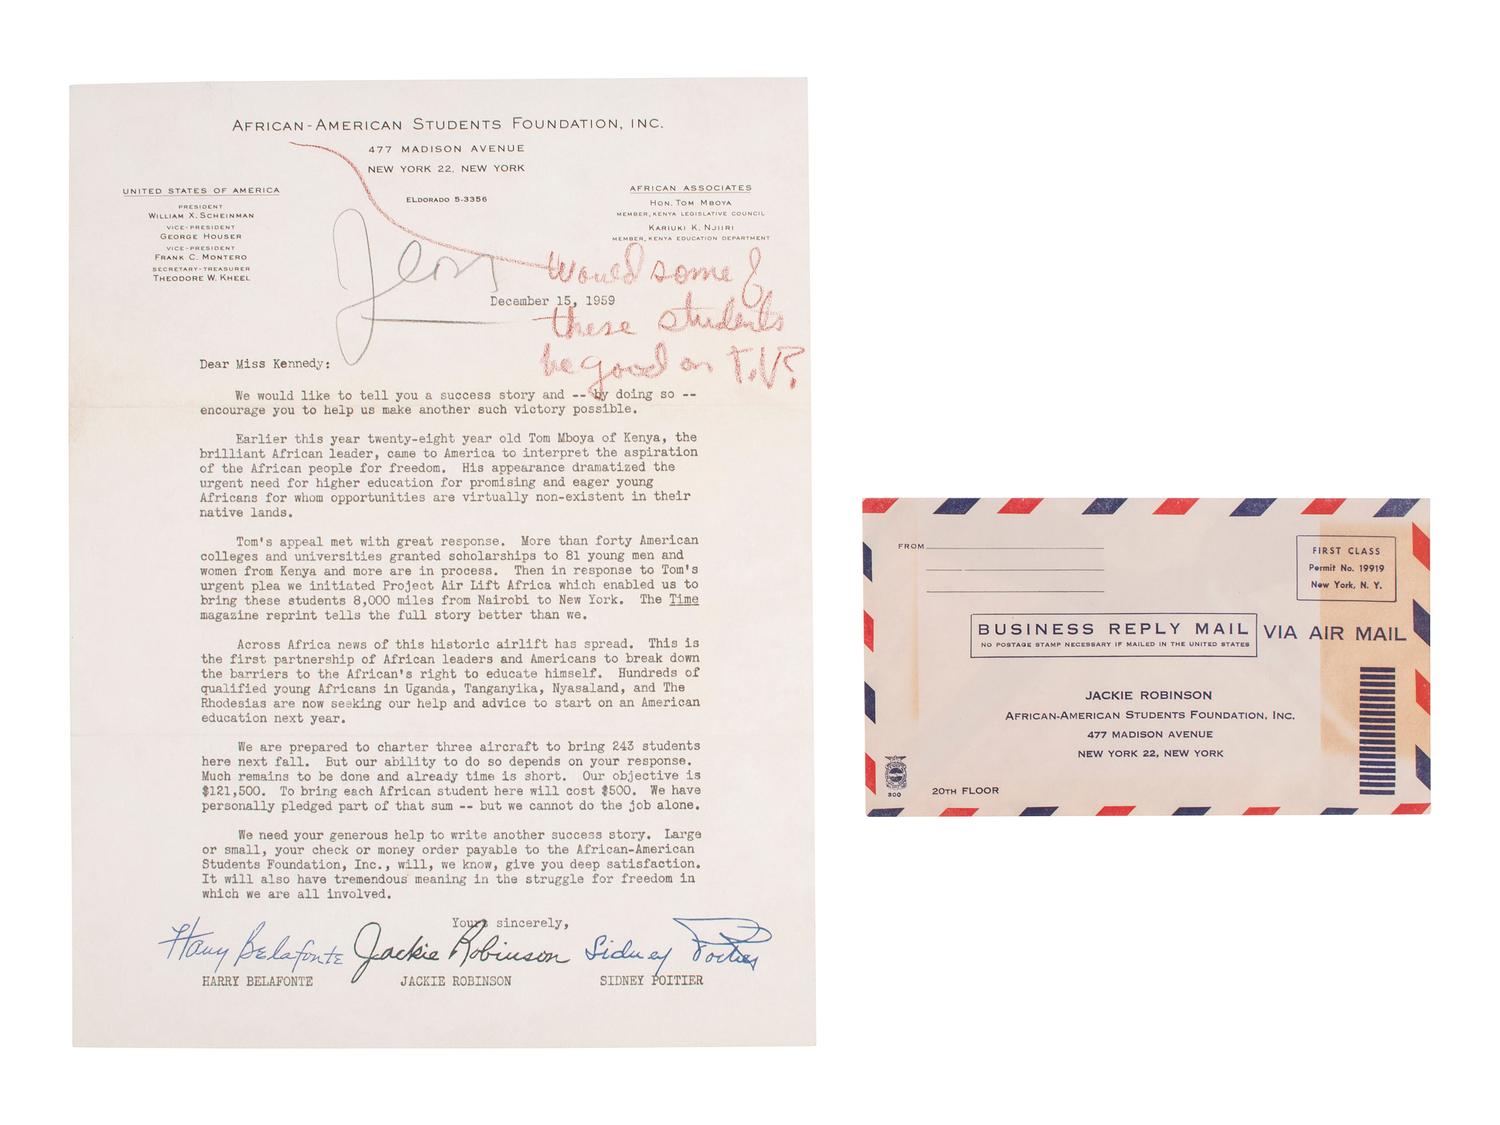 AFRICAN-AMERICAN STUDENTS FOUNDATION, INC.
477 MADISON AVENUE
NEW YORK 22, NEW YORK
ELDORADO 5-3356
UNITED STATES OF AMERICA
PRESIDENT
WILLIAM X. SCHEINMAN
VICE-PRESIDENT
GEORGE HOUSER
VICE-PRESIDENT
FRANK C. MONTERO
SECRETARY-TREASURER
THEODORE W. KHEEL
AFRICAN ASSOCIATES
HON. TOM MBOYA
MEMBER, KENYA LEGISLATIVE COUNCIL
KARIUKI K. NJIIRI
MEMBER, KENYA EDUCATION DEPARTMENT
Would some of
these students
be good on T.V?
December 15, 1959
Dear Miss Kennedy:
We would like to tell you a success story and -- by doing so --
encourage you to help us make another such victory possible.
Earlier this year twenty-eight year old Tom Mboya of Kenya, the
brilliant African leader, came to America to interpret the aspiration
of the African people for freedom. His appearance dramatized the
urgent need for higher education for promising and eager young
Africans for whom opportunities are virtually non-existent in their
native lands.
Tom's appeal met with great response. More than forty American
colleges and universities granted scholarships to 81 young men and
women from Kenya and more are in process. Then in response to Tom's
urgent plea we initiated Project Air Lift Africa which enabled us to
bring these students 8,000 miles from Nairobi to New York. The Time
magazine reprint tells the full story better than we.
Across Africa news of this historic airlift has spread. This is
the first partnership of African leaders and Americans to break down
the barriers to the African's right to educate himself. Hundreds of
qualified young Africans in Uganda, Tanganyika, Nyasaland, and The
Rhodesias are now seeking our help and advice to start on an American
education next year.
We are prepared to charter three aircraft to bring 243 students
here next fall. But our ability to do so depends on your response.
Much remains to be done and already time is short. Our objective is
$121,500. To bring each African student here will cost $500. We have
personally pledged part of that sum -- but we cannot do the job alone.
We need your generous help to write another success story. Large
or small, your check or money order payable to the African-American
Students Foundation, Inc., will, we know, give you deep satisfaction.
It will also have tremendous meaning in the struggle for freedom in
which we are all involved.
Yours sincerely,
Harry Belafonte Jackie Robinson Sidney Poitier
HARRY BELAFONTE JACKIE ROBINSON SIDNEY POITIER
FROM
FIRST CLASS
Permit No. 19919
New York, N. Y.
BUSINESS REPLY MAIL
NO POSTAGE STAMP NECESSARY IF MAILED IN THE UNITED STATES
VIA AIR MAIL
JACKIE ROBINSON
AFRICAN-AMERICAN STUDENTS FOUNDATION, INC.
477 MADISON AVENUE
NEW YORK 22, NEW YORK
300
20TH FLOOR